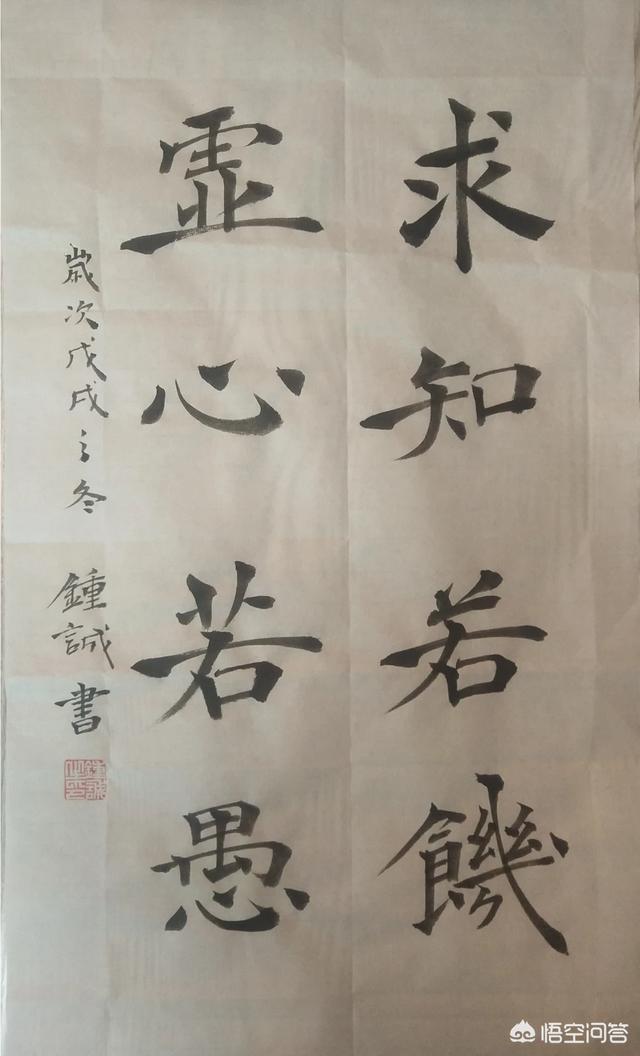 求知若饑
虛心若愚
歲次戊戌之冬 鍾誠書
鍾誠之印
悟空问答